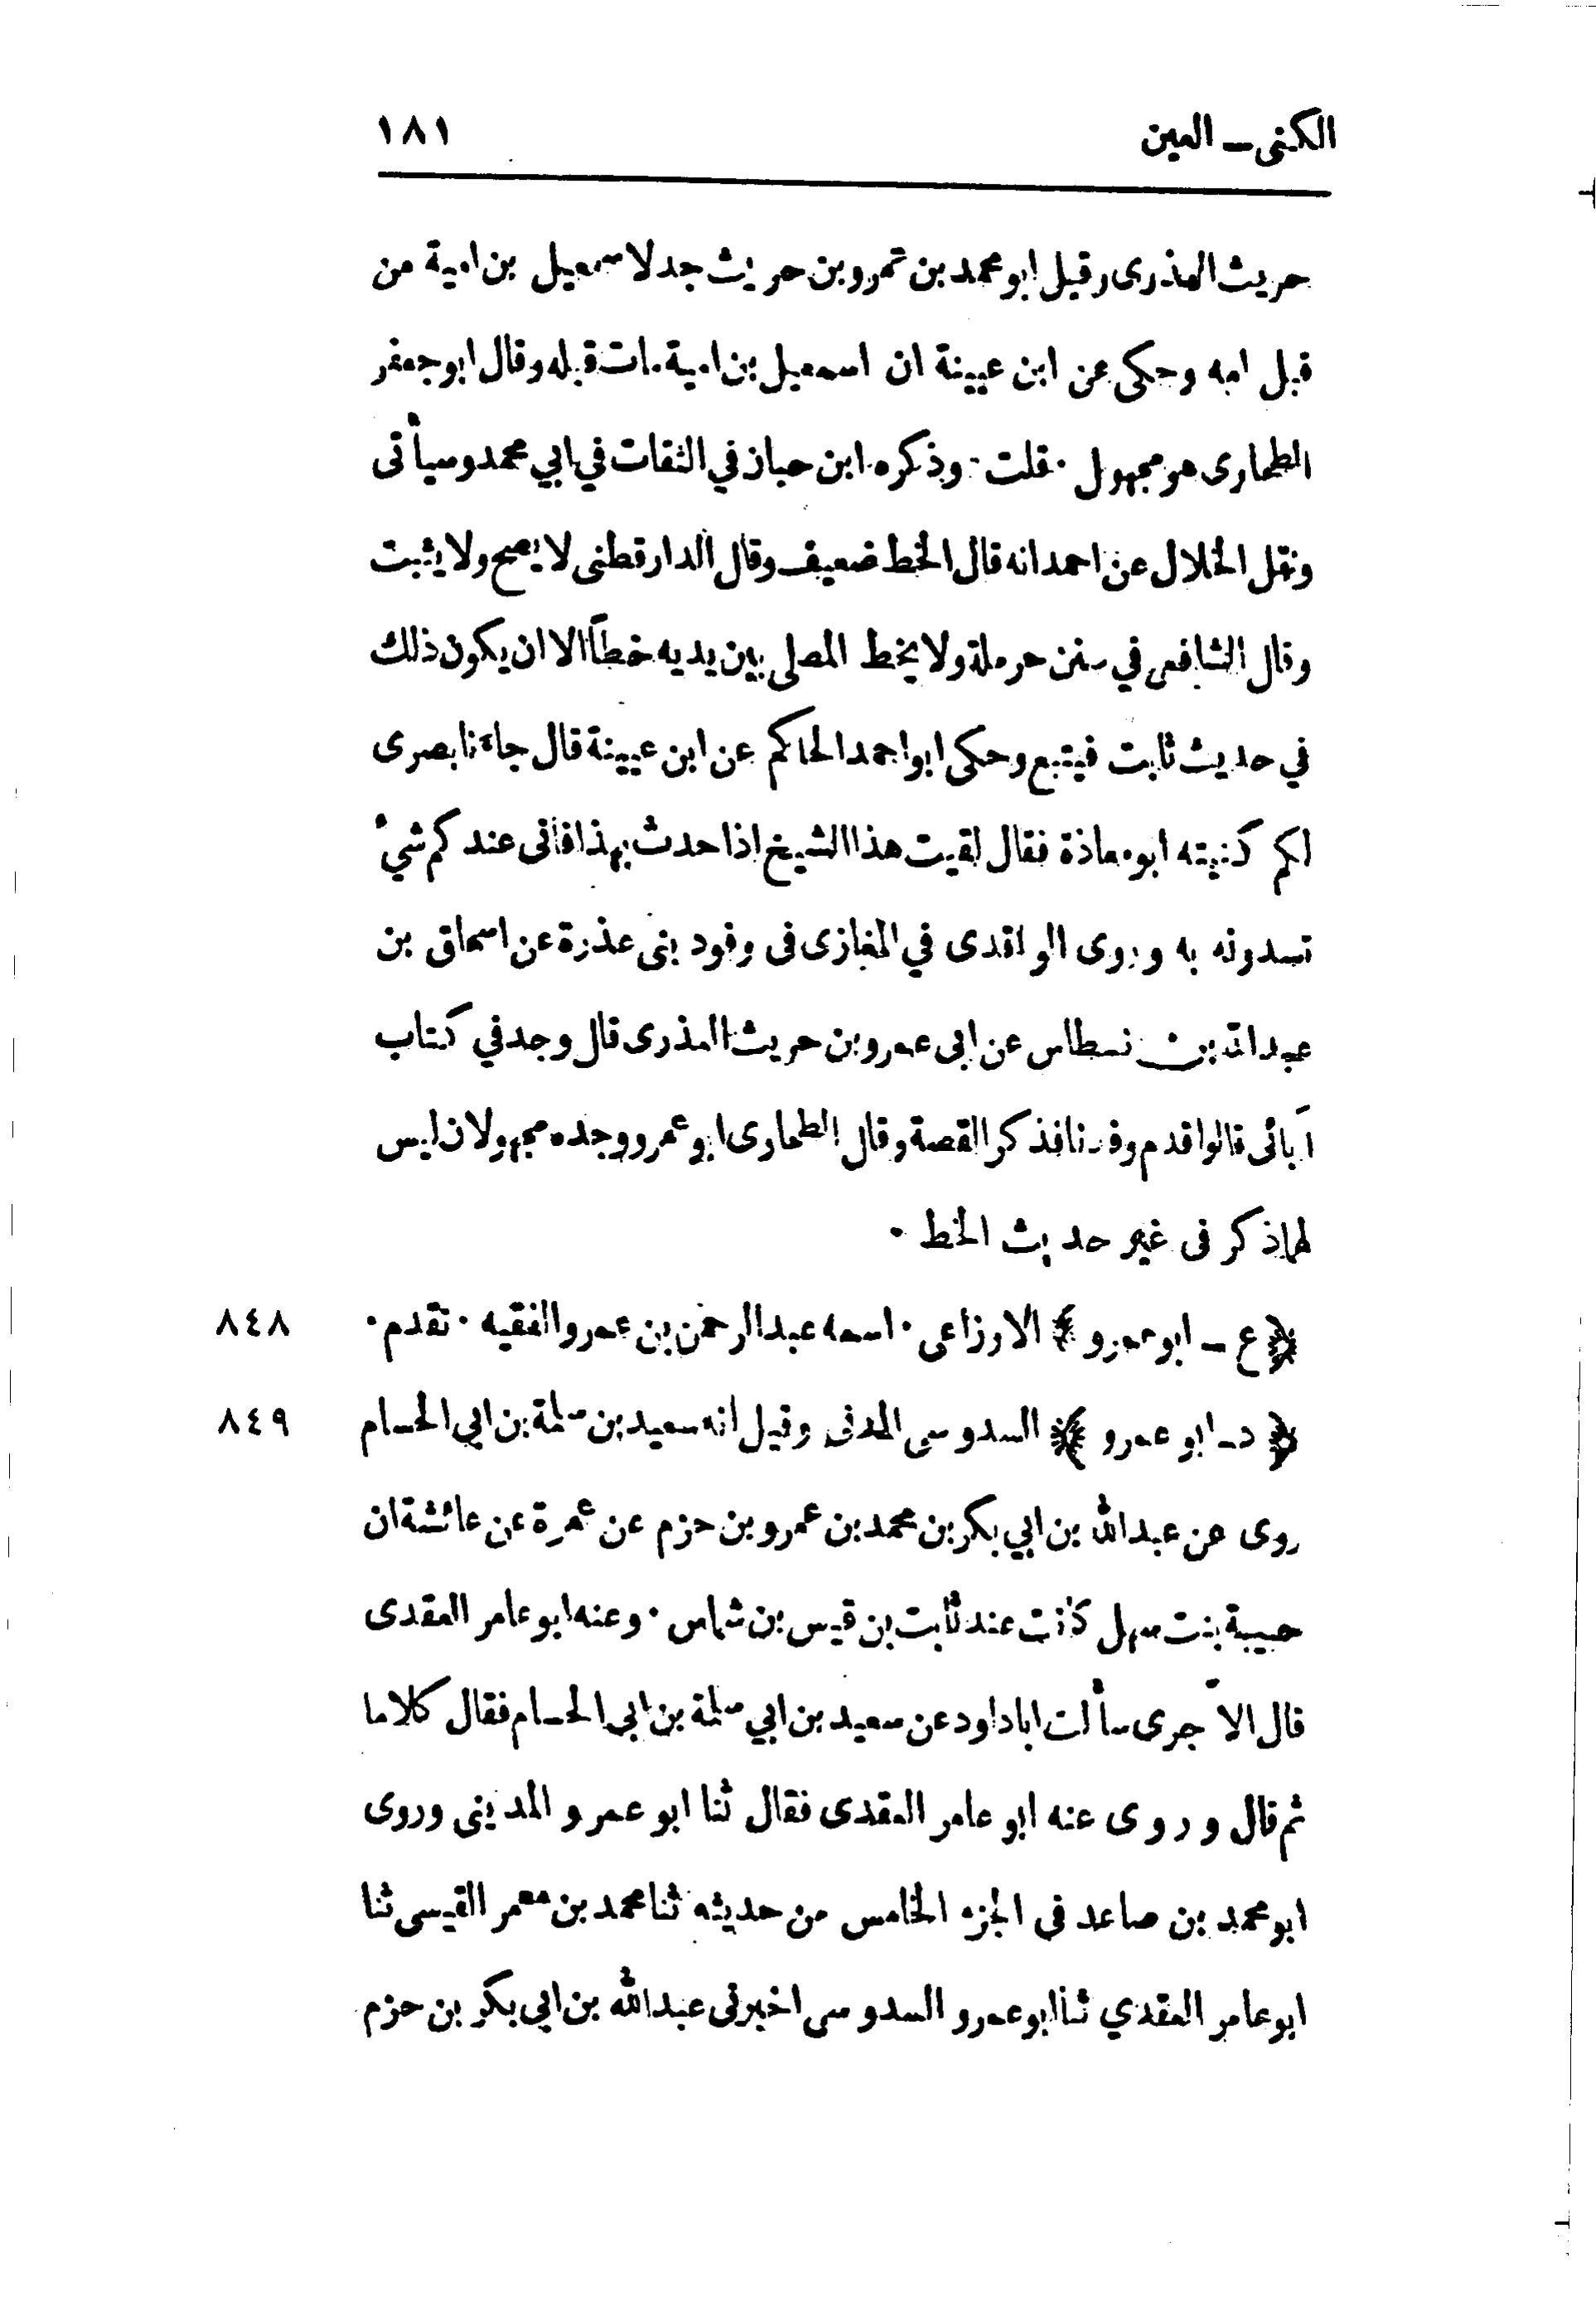 الكنى ـ العين ١٨١
حريث العذرى وقيل ابو محمد بن عمرو بن حريث جد لاسمعيل بن امية من
قبل امه وحكى عن ابن عيينة ان اسمعيل بن امية مات قبله وقال ابو جعفر
الطحاوى هو مجهول . قلت . وذكره ابن حبان في الثقات في ابي محمد وسيأتى
ونقل الخلال عن احمد انه قال الخط ضعيف وقال الدارقطنى لا يصح ولا يثبت
وقال الشافعى في سنن حرملة ولا يخط المصلى بين يديه خطاً الا ان يكون ذلك
في حديث ثابت فيتبع وحكى ابو احمد الحاكم عن ابن عيينة قال جاءنا بصرى
لكم كنيته ابو معاذة فقال لقيت هذا الشيخ اذا حدث بهذا فاتى عندكم شيء
تسدونه به وروى الواقدى في المغازى فى وفود بنى عذرة عن اسحاق بن
عبد الله بن نسطاس عن ابى عمرو بن حريث العذرى قال وجد في كتاب
آبائى قالوا قدم وفدنا فذكر القصة وقال الطحاوى ابو عمرو وجده مجهولان ليس
لهما ذكر فى غير حديث الخط .
﴿ ع ـ ابو عمرو ﴾ الاوزاعى . اسمه عبد الرحمن بن عمرو الفقيه . تقدم . ٨٤٨
﴿ د ـ ابو عمرو ﴾ السدوسى المدنى وقيل انه سعيد بن سلمة بن ابي الحسام ٨٤٩
روى عن عبد الله بن ابي بكر بن محمد بن عمرو بن حزم عن عمرة عن عائشة ان
حبيبة بنت سهل كانت عند ثابت بن قيس بن شماس . وعنه ابو عامر العقدى
قال الآجرى سألت ابا داود عن سعيد بن ابي سلمة بن ابي الحسام فقال كلاما
ثم قال وروى عنه ابو عامر العقدى فقال ثنا ابو عمرو المدينى وروى
ابو محمد بن صاعد فى الجزء الخامس من حديثه ثنا محمد بن معمر القيسى ثنا
ابو عامر العقدي ثنا ابو عمرو السدوسى اخبرنى عبد الله بن ابي بكر بن حزم